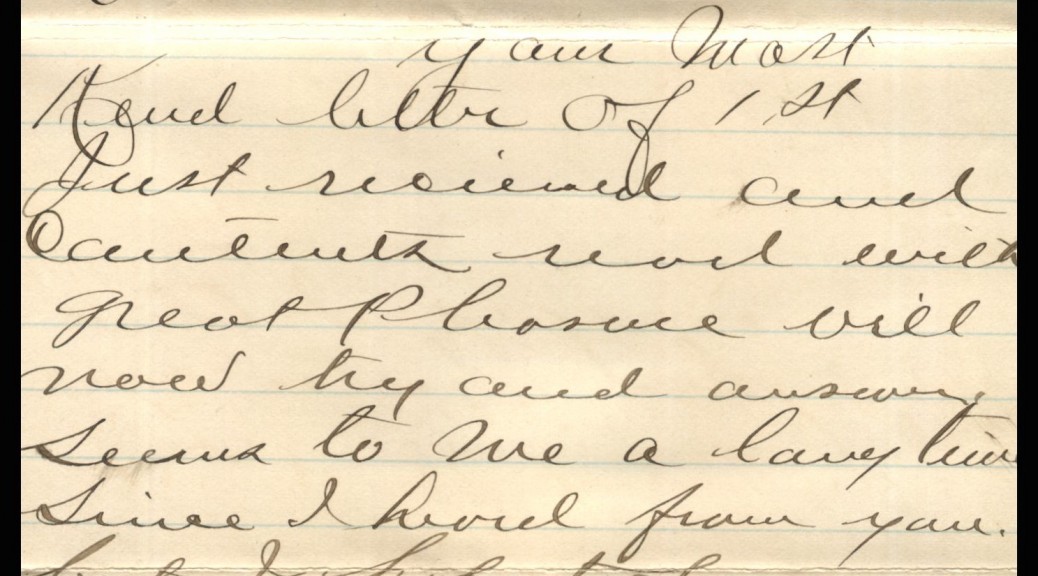 your Most
Kind letter of 1st
Just recieved and
Contents read with
great Pleasure will
now try and answer
seems to Me a long time
Since I heard from you.